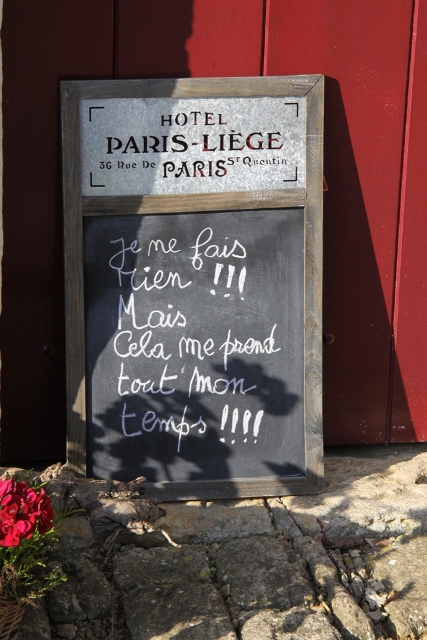 HOTEL
PARIS-LIÈGE
36 Rue De PARIS St Quentin
Je ne fais
rien !!!
Mais
Cela me prend
tout mon
temps !!!!